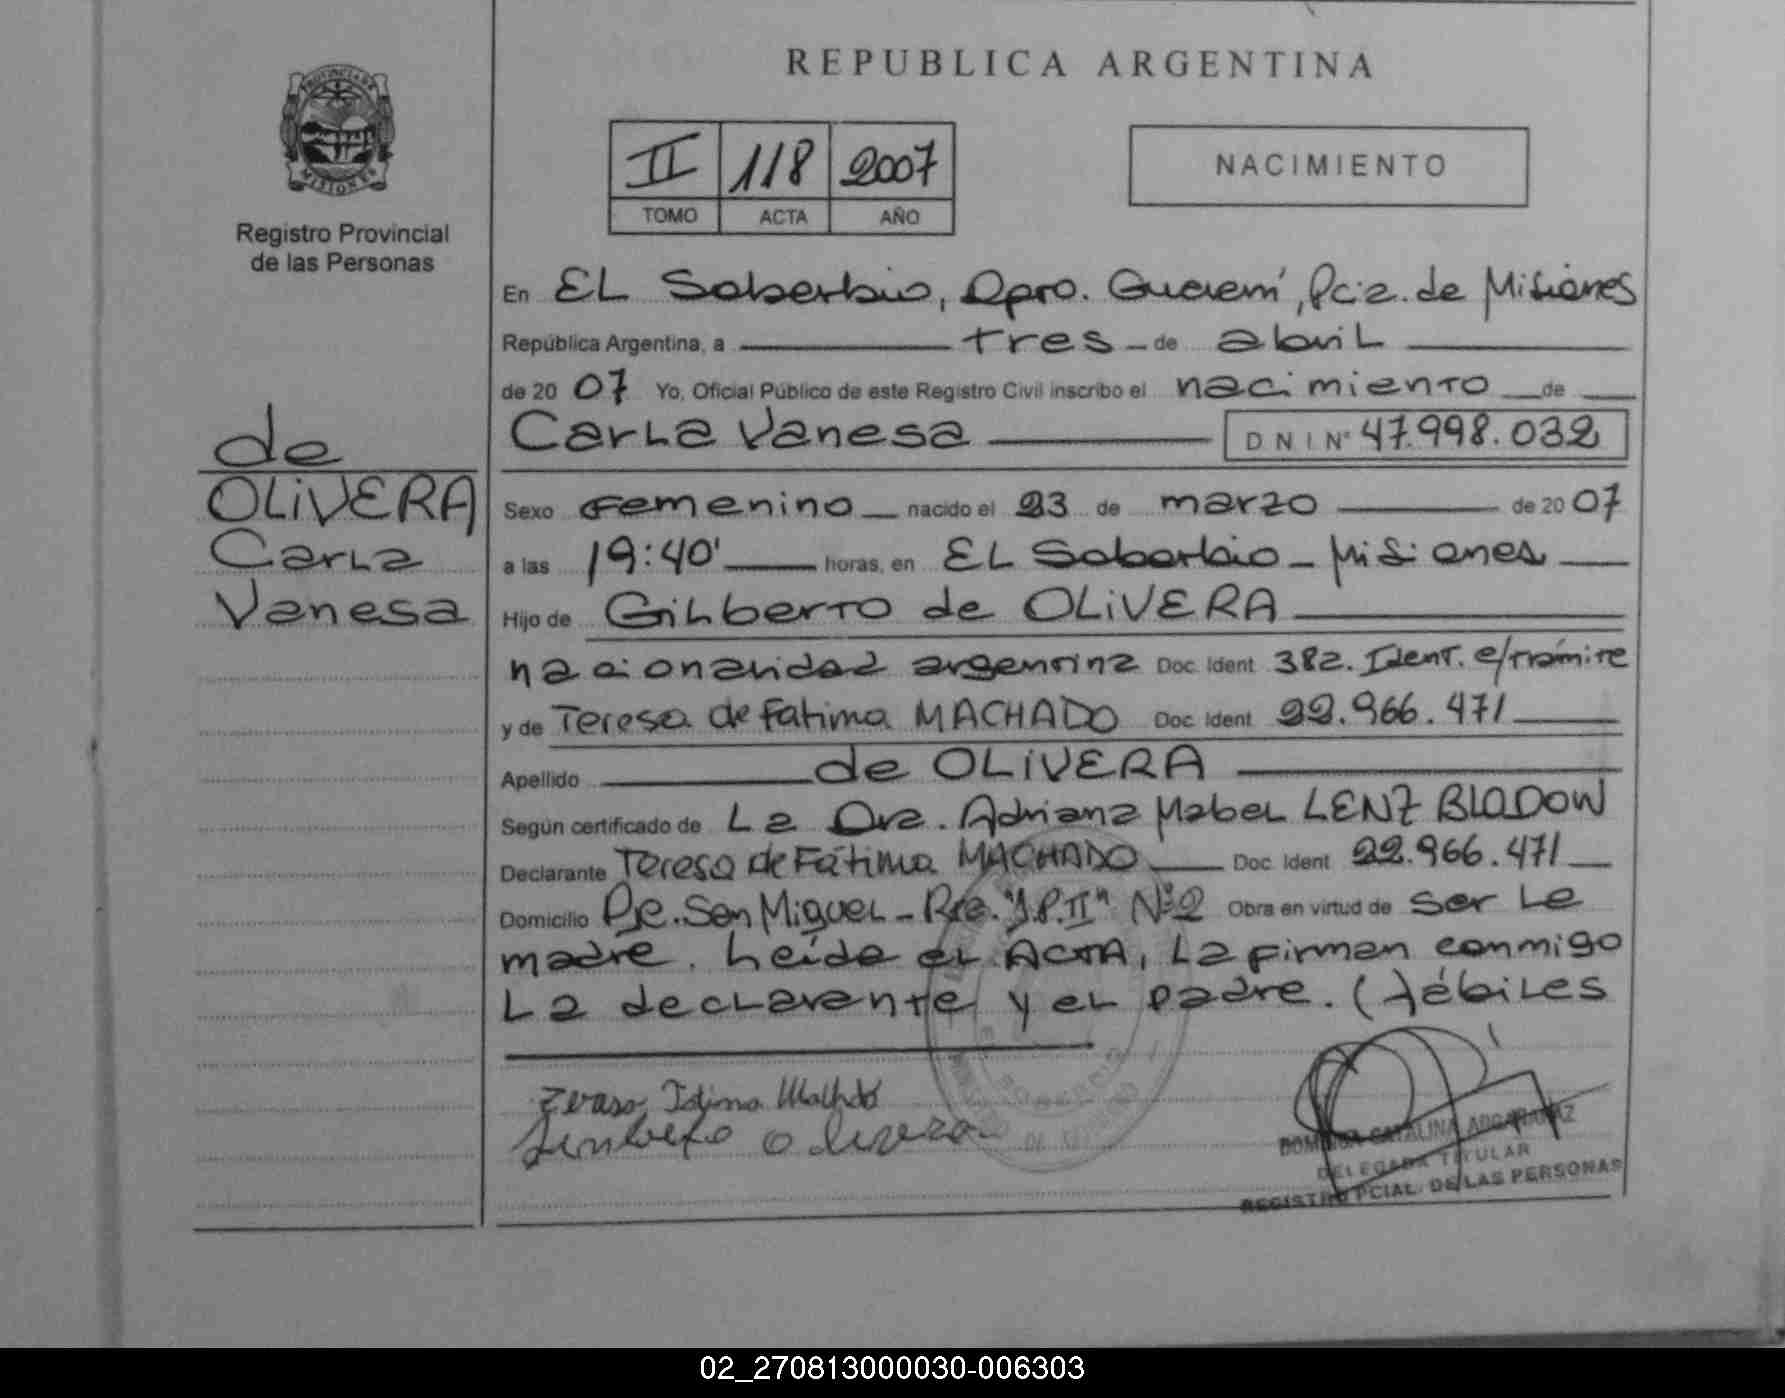 REPUBLICA ARGENTINA
PROVINCIA DE
MISIONES
Registro Provincial
de las Personas
II 118 2007
TOMO ACTA AÑO
NACIMIENTO
de
OLIVERA
Carla
Vanesa
En El Soberbio, Dpto. Guaraní, Pcia. de Misiones
República Argentina, a tres de abril
de 20 07 Yo, Oficial Público de este Registro Civil inscribo el nacimiento de
Carla Vanesa DNI Nº 47.998.032
Sexo Femenino nacido el 23 de marzo de 20 07
a las 19:40' horas, en El Soberbio - Misiones
Hijo de Gilberto de OLIVERA
nacionalidad argentina Doc. Ident. Ident. e/trámite
y de Teresa de Fatima MACHADO Doc. Ident 22.966.471
Apellido de OLIVERA
Según certificado de La Dra. Adriana Mabel LENZ BLODOW
Declarante Teresa de Fátima MACHADO Doc. Ident 22.966.471
Domicilio Pje. San Miguel - "J.P.II" Nº 2 Obra en virtud de ser la
madre. Leída el ACTA, la firman conmigo
la declarante y el padre.
DELEGADA TITULAR
REGISTRO PCIAL. DE LAS PERSONAS
02_270813000030-006303